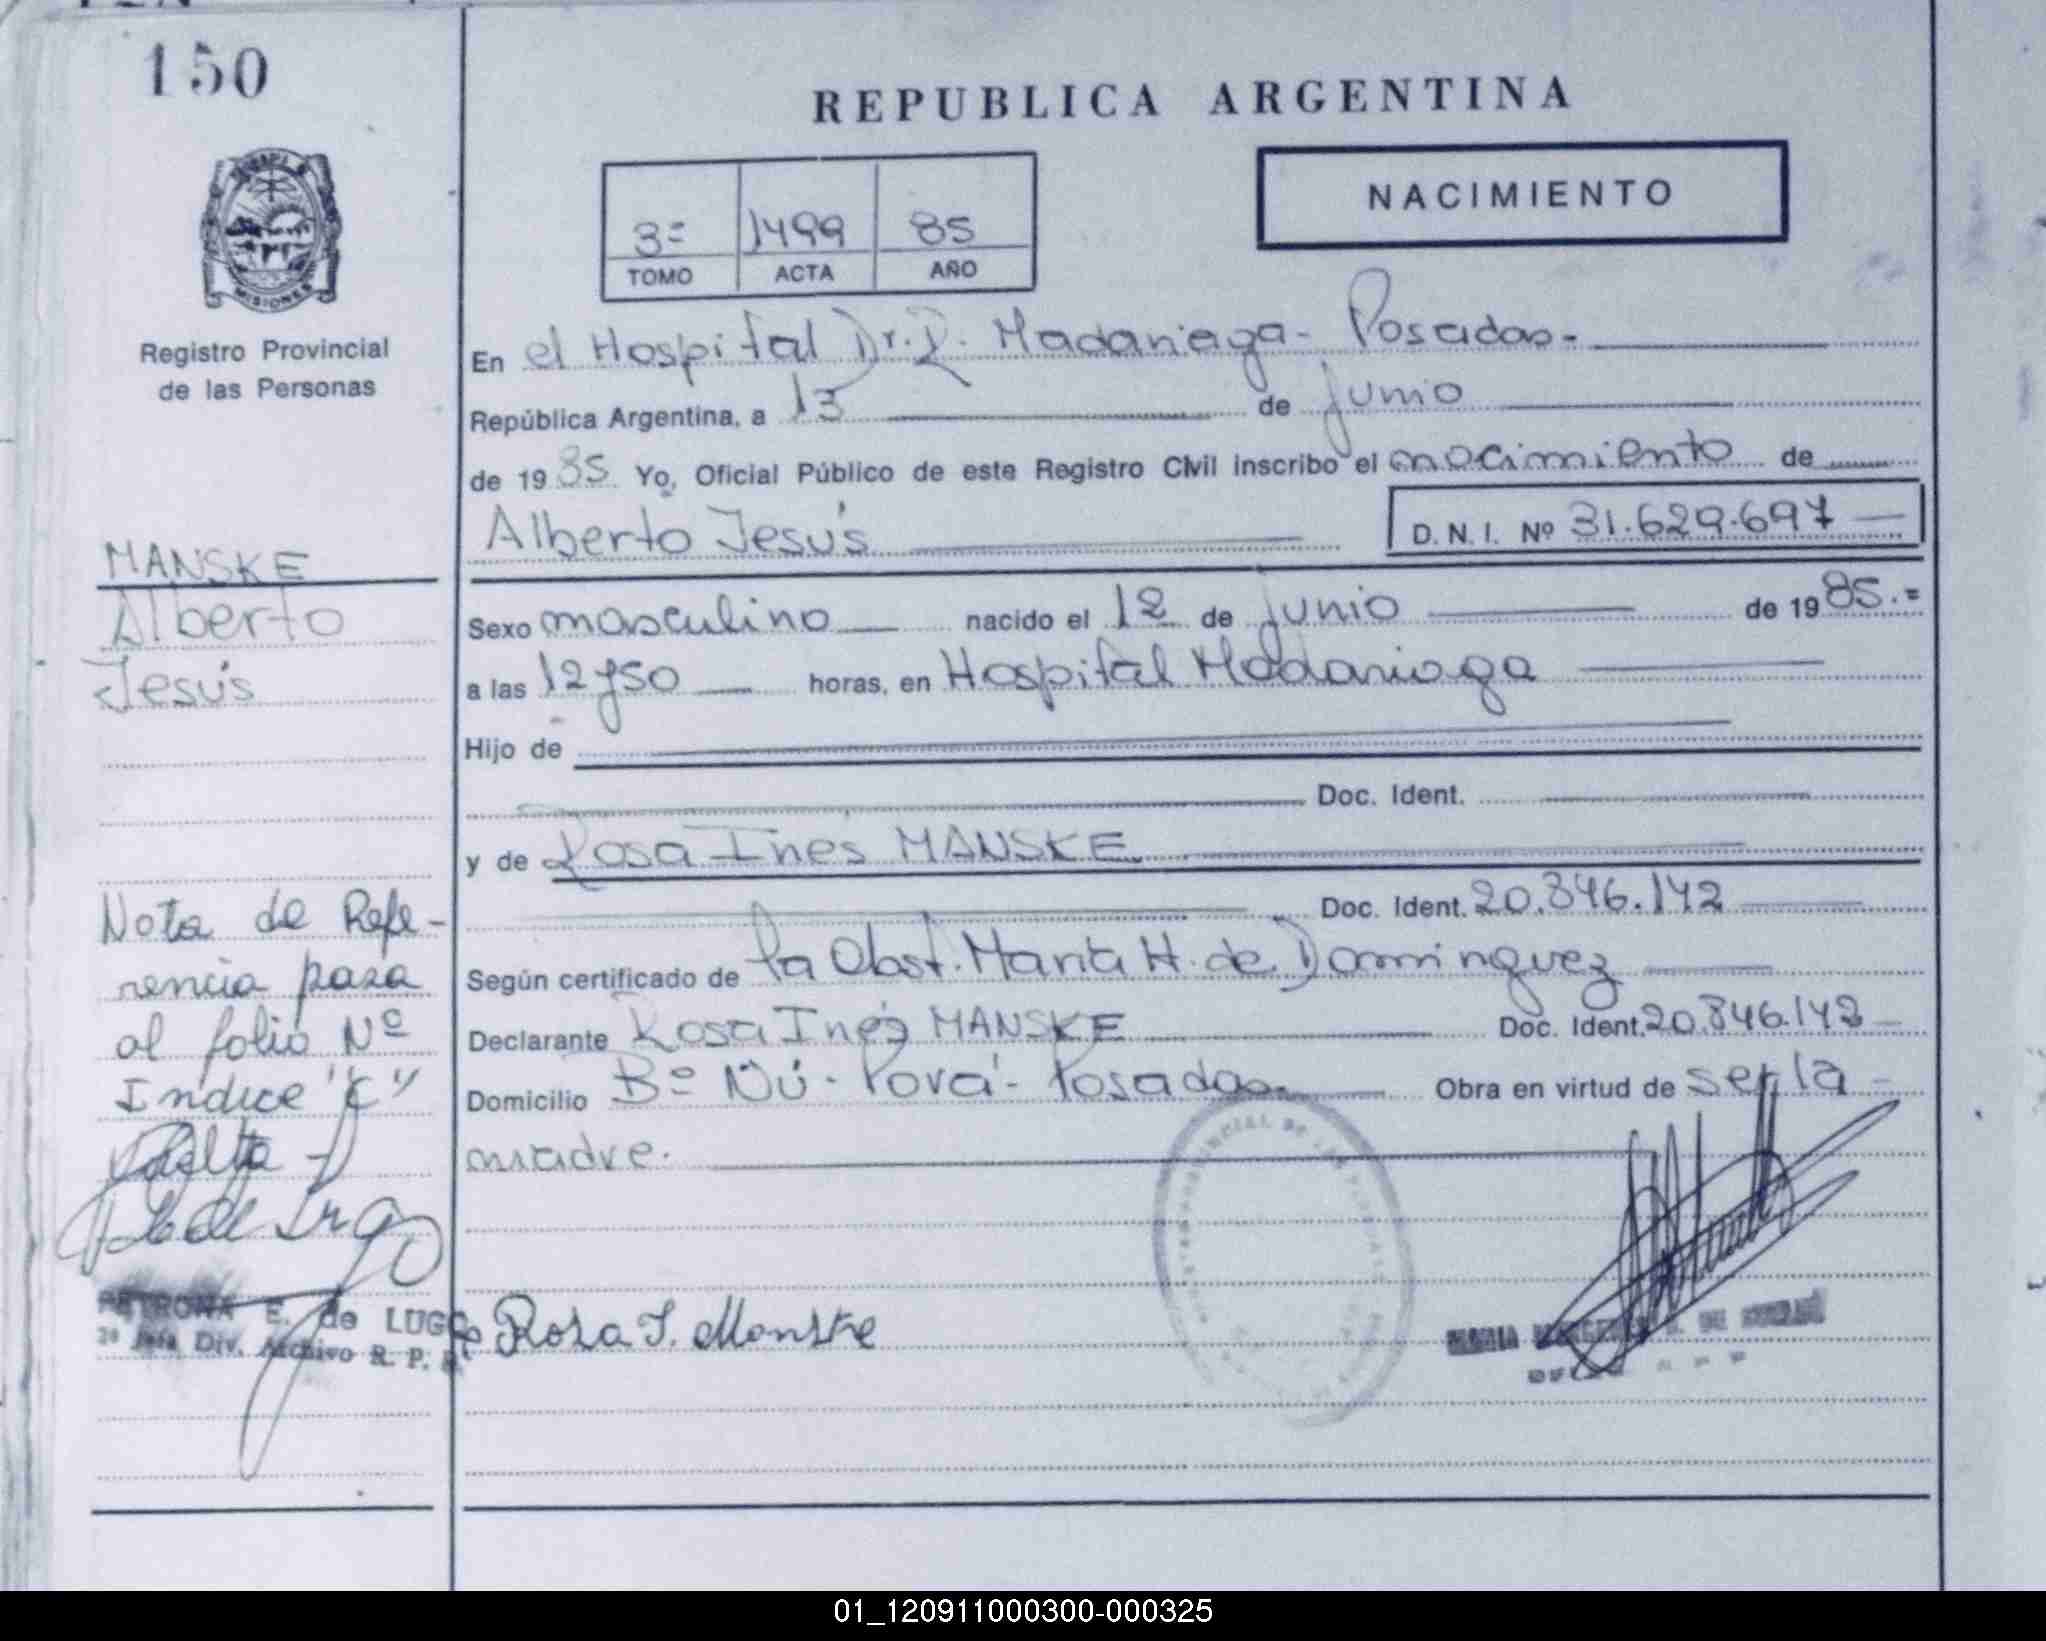 150
REPUBLICA ARGENTINA
NACIMIENTO
3º 1499 85
TOMO ACTA AÑO
MISIONES
Registro Provincial
de las Personas
En el Hospital Dr. R. Madariaga - Posadas.-
República Argentina, a 13 de junio
de 1985 Yo, Oficial Público de este Registro Civil inscribo el nacimiento de
Alberto Jesús D. N. I. Nº 31.629.697
Sexo masculino nacido el 12 de junio de 1985.=
a las 12 y 50 horas, en Hospital Madariaga
Hijo de
Doc. Ident.
y de Rosa Inés MANSKE
Doc. Ident. 20.846.142
Según certificado de la Obst. Marta H. de Dominguez
Declarante Rosa Inés MANSKE Doc. Ident. 20.846.142
Domicilio Bº Ñú - Porá - Posadas Obra en virtud de ser la
madre.
Rosa I. Manske
MANSKE
Alberto
Jesús
Nota de Refe-
rencia pasa
al folio Nº
Indice "C"
PETRONA E. de LUGO
2º Jefe Div. Archivo R. P. P.
MARIA DE
01_120911000300-000325